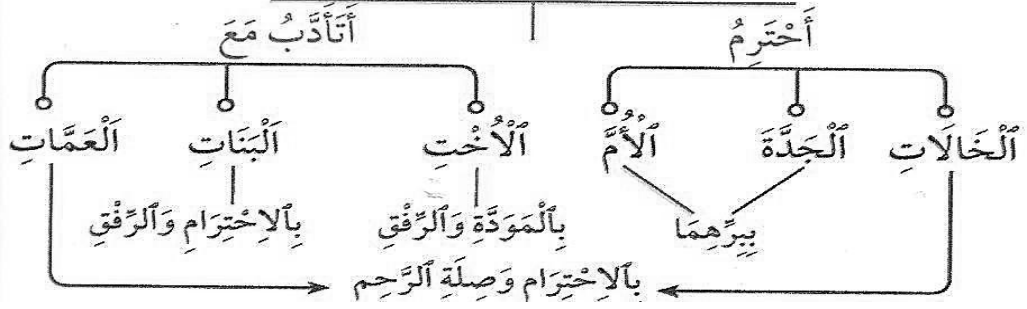 أَحْتَرِمُ أَتَأَدَّبُ مَعَ
ٱلْخَالَاتِ ٱلْجَدَّةَ ٱلْأُمَّ ٱلْأُخْتِ اَلْبَنَاتِ اَلْعَمَّاتِ
بِبِرِّهِمَا بِٱلْمَوَدَّةِ وَٱلرِّفْقِ بِٱلِاحْتِرَامِ وَٱلرِّفْقِ
بِٱلِاحْتِرَامِ وَصِلَةِ ٱلرَّحِمِ